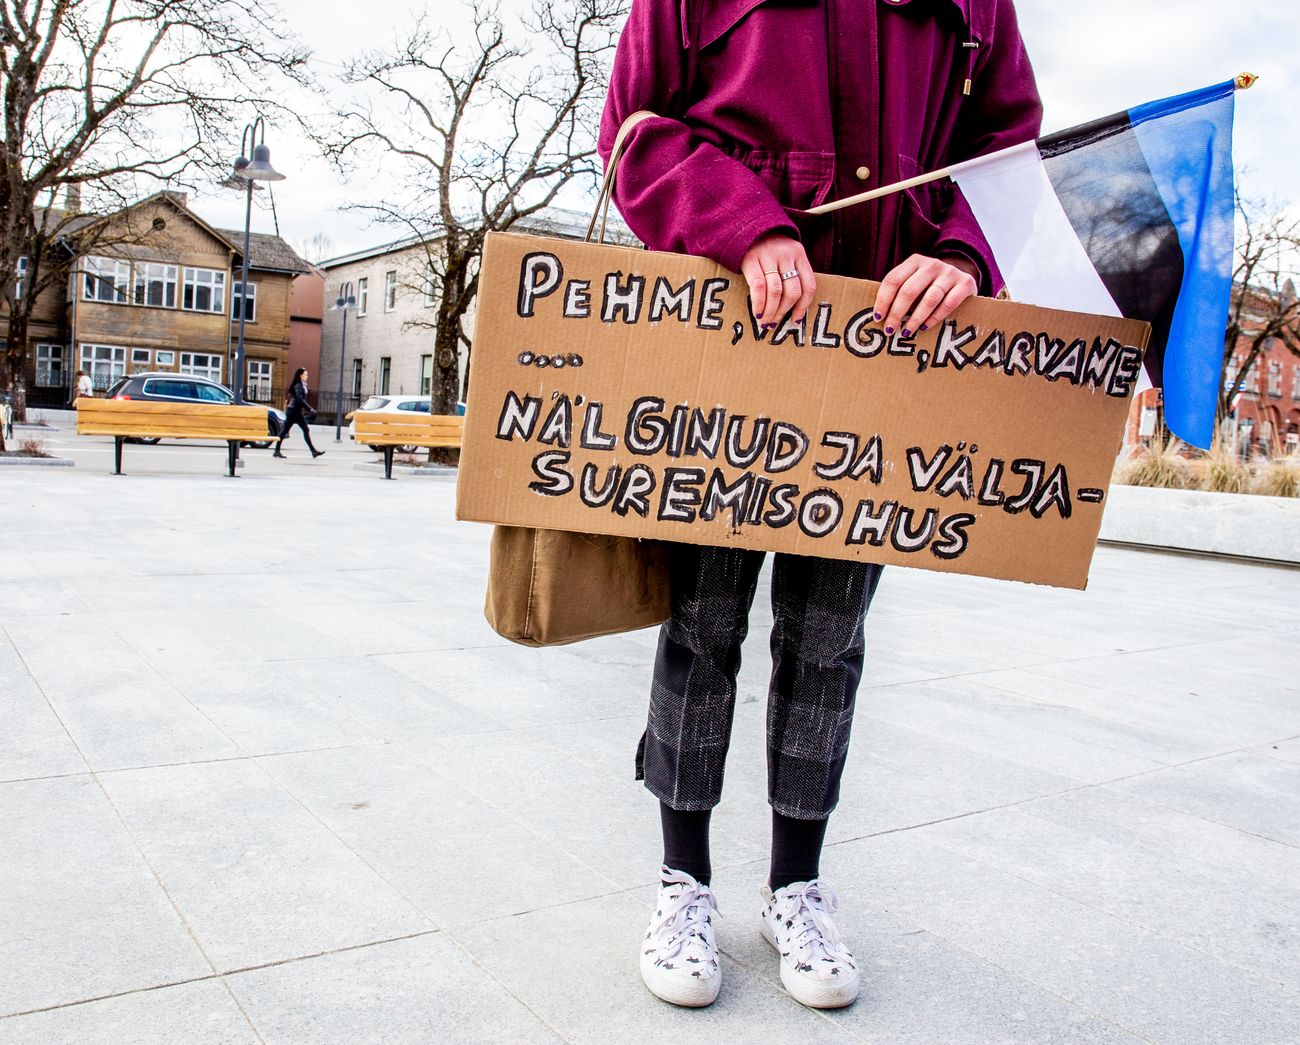 PEHME, VALGE, KARVANE
....
NÄLGINUD JA VÄLJA-
SUREMISOHUS